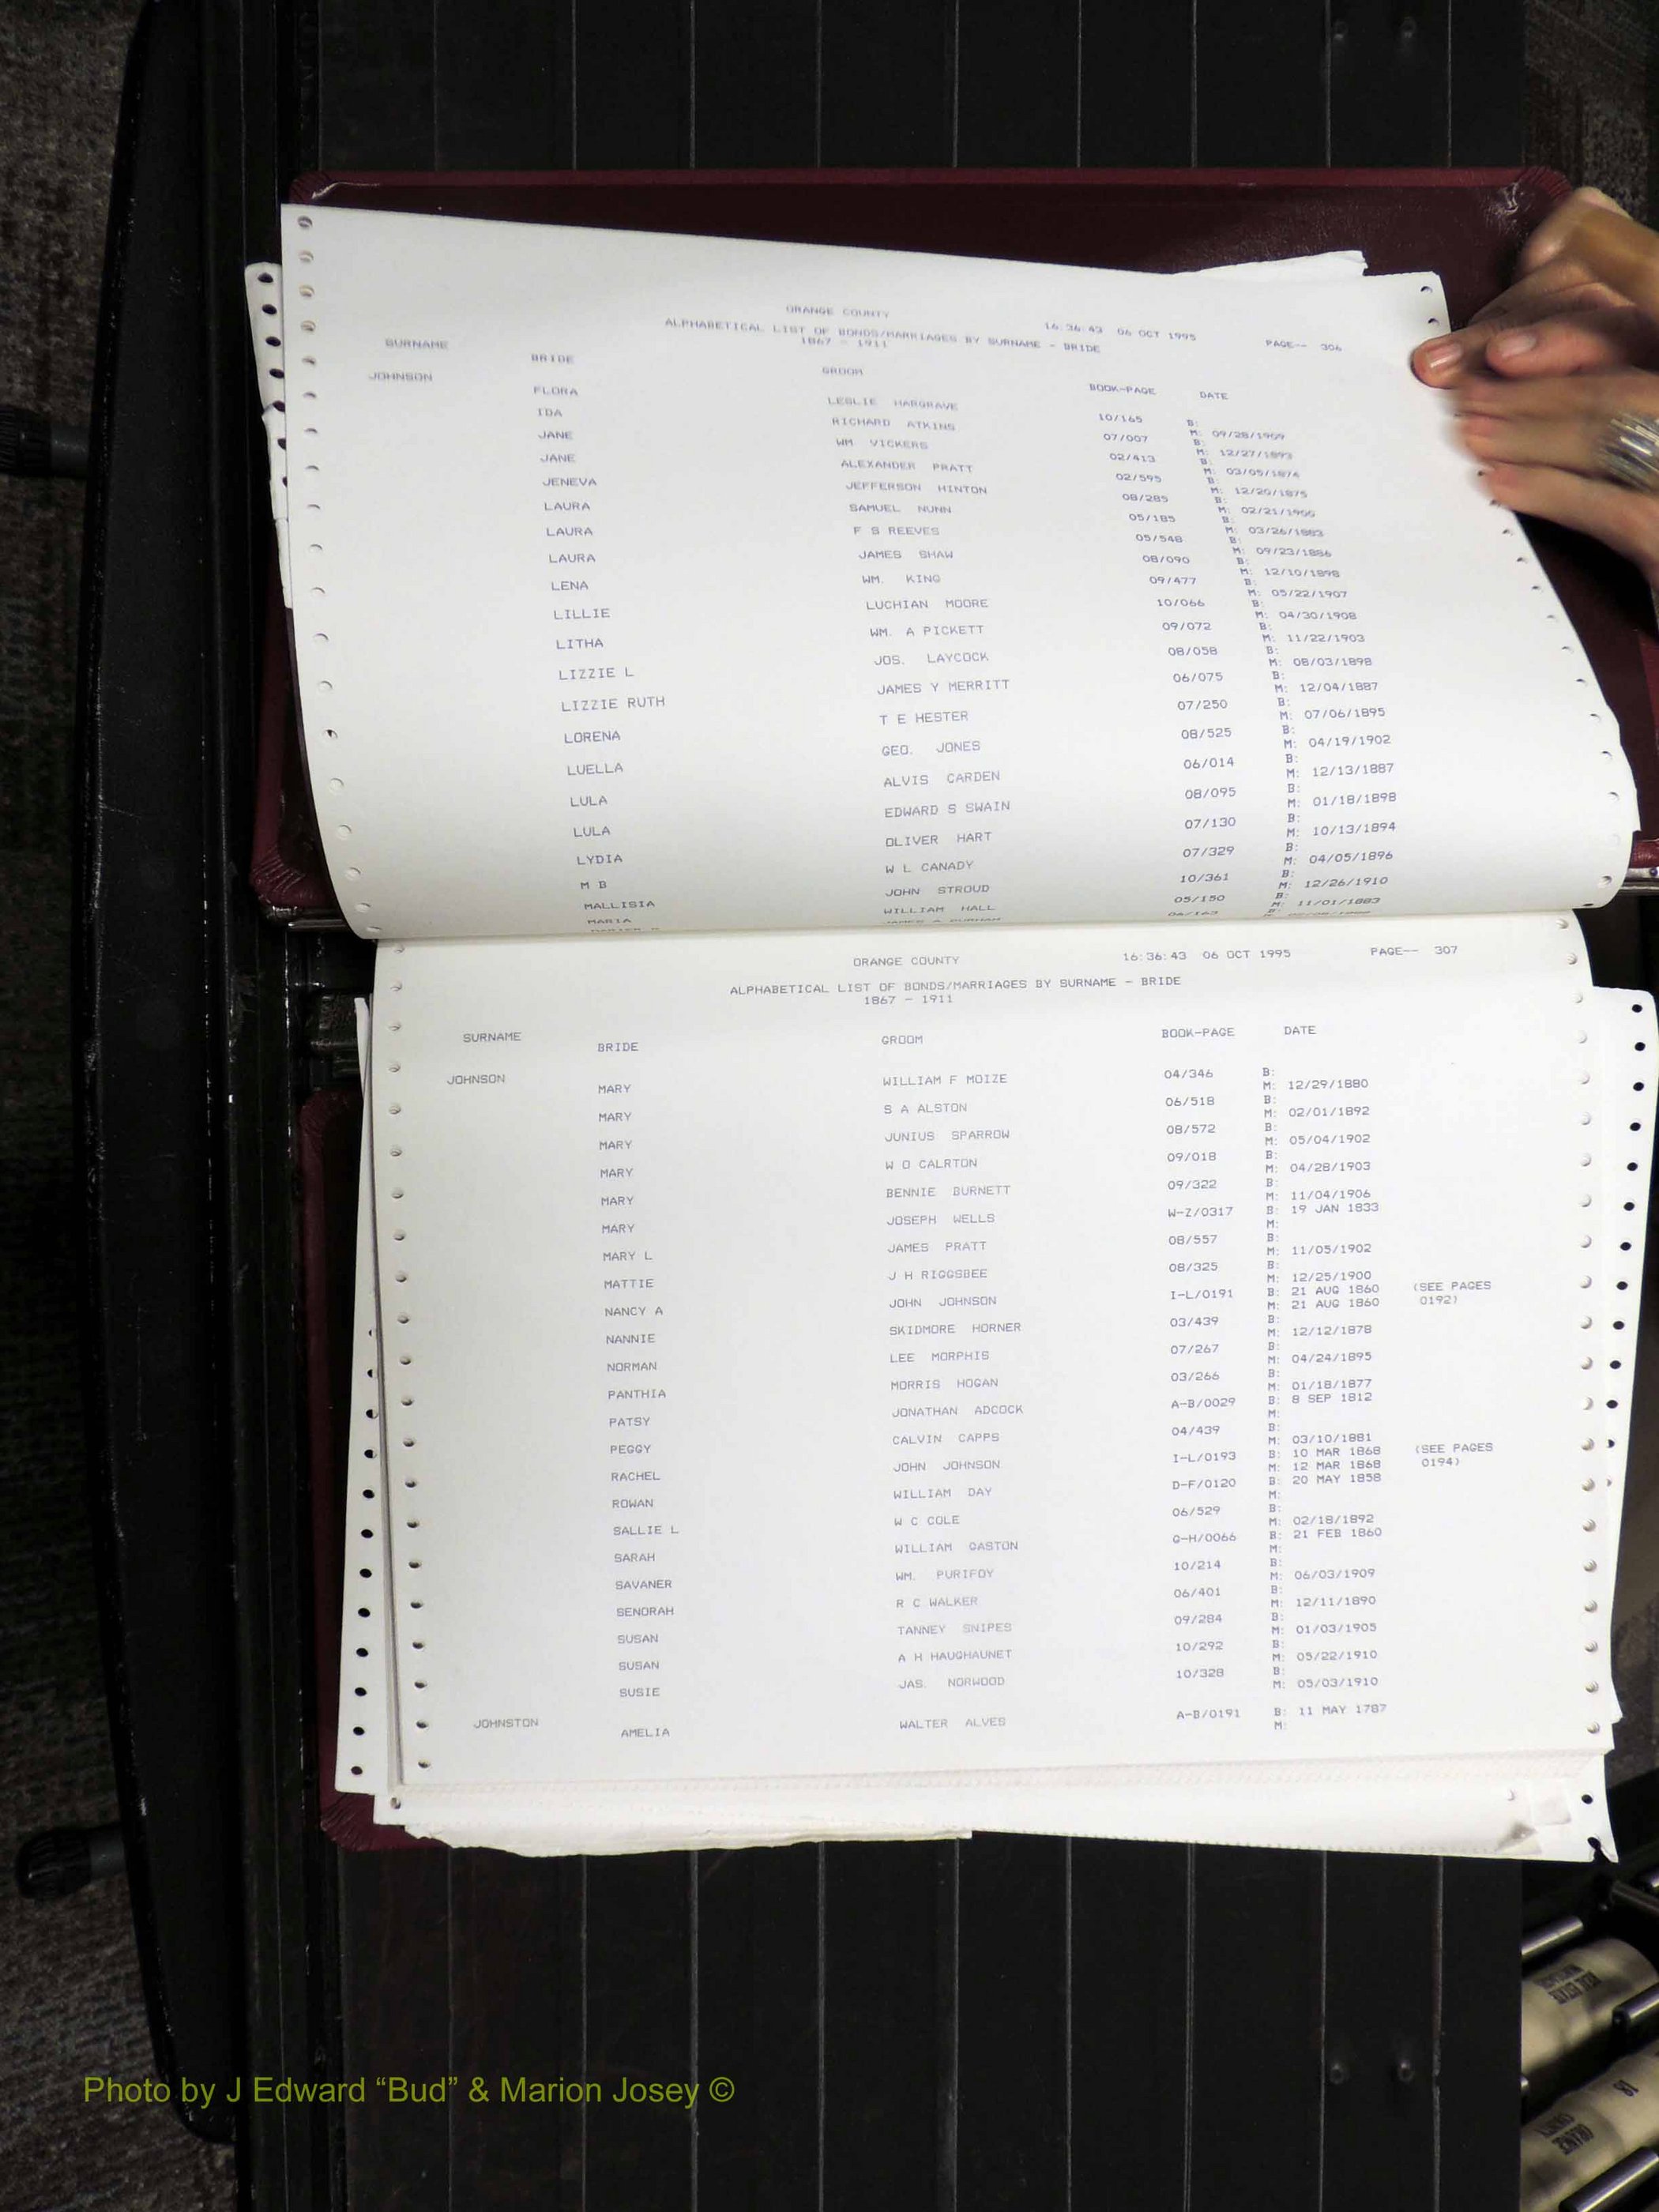 ORANGE COUNTY 16:36:43 06 OCT 1995 PAGE-- 306
ALPHABETICAL LIST OF BONDS/MARRIAGES BY SURNAME - BRIDE
1867 - 1911
SURNAME BRIDE GROOM BOOK-PAGE DATE
JOHNSON FLORA LESLIE HARGRAVE 10/165 B: M: 09/28/1909
IDA RICHARD ATKINS 07/007 B: M: 12/27/1893
JANE WM VICKERS 02/413 B: M: 03/05/1874
JANE ALEXANDER PRATT 02/595 B: M: 12/20/1875
JENEVA JEFFERSON HINTON 08/285 B: M: 02/21/1900
LAURA SAMUEL NUNN 05/185 B: M: 03/26/1883
LAURA F S REEVES 05/548 B: M: 09/23/1886
LAURA JAMES SHAW 08/090 B: M: 12/10/1898
LENA WM. KING 09/477 B: M: 05/22/1907
LILLIE LUCHIAN MOORE 10/066 B: M: 04/30/1908
LITHA WM. A PICKETT 09/072 B: M: 11/22/1903
LIZZIE L JOS. LAYCOCK 08/058 B: M: 08/03/1898
LIZZIE RUTH JAMES Y MERRITT 06/075 B: M: 12/04/1887
LORENA T E HESTER 07/250 B: M: 07/06/1895
LUELLA GEO. JONES 08/525 B: M: 04/19/1902
LULA ALVIS CARDEN 06/014 B: M: 12/13/1887
LULA EDWARD S SWAIN 08/095 B: M: 01/18/1898
LYDIA OLIVER HART 07/130 B: M: 10/13/1894
M B W L CANADY 07/329 B: M: 04/05/1896
MALLISIA JOHN STROUD 10/361 B: M: 12/26/1910
MARIA WILLIAM HALL 05/150 B: M: 11/01/1883
JAMES A DURHAM 06/163 B:
ORANGE COUNTY 16:36:43 06 OCT 1995 PAGE-- 307
ALPHABETICAL LIST OF BONDS/MARRIAGES BY SURNAME - BRIDE
1867 - 1911
SURNAME BRIDE GROOM BOOK-PAGE DATE
JOHNSON MARY WILLIAM F MOIZE 04/346 B: M: 12/29/1880
MARY S A ALSTON 06/518 B: M: 02/01/1892
MARY JUNIUS SPARROW 08/572 B: M: 05/04/1902
MARY W O CALRTON 09/018 B: M: 04/28/1903
MARY BENNIE BURNETT 09/322 B: M: 11/04/1906
MARY JOSEPH WELLS W-Z/0317 B: 19 JAN 1833 M:
MARY L JAMES PRATT 08/557 B: M: 11/05/1902
MATTIE J H RIGGSBEE 08/325 B: M: 12/25/1900
NANCY A JOHN JOHNSON I-L/0191 B: 21 AUG 1860 M: 21 AUG 1860 (SEE PAGES 0192)
NANNIE SKIDMORE HORNER 03/439 B: M: 12/12/1878
NORMAN LEE MORPHIS 07/267 B: M: 04/24/1895
PANTHIA MORRIS HOGAN 03/266 B: M: 01/18/1877
PATSY JONATHAN ADCOCK A-B/0029 B: 8 SEP 1812 M:
PEGGY CALVIN CAPPS 04/439 B: M: 03/10/1881
RACHEL JOHN JOHNSON I-L/0193 B: 10 MAR 1868 M: 12 MAR 1868 (SEE PAGES 0194)
ROWAN WILLIAM DAY D-F/0120 B: 20 MAY 1858 M:
SALLIE L W C COLE 06/529 B: M: 02/18/1892
SARAH WILLIAM GASTON G-H/0066 B: 21 FEB 1860 M:
SAVANER WM. PURIFOY 10/214 B: M: 06/03/1909
SENORAH R C WALKER 06/401 B: M: 12/11/1890
SUSAN TANNEY SNIPES 09/284 B: M: 01/03/1905
SUSAN A H HAUGHAUNET 10/292 B: M: 05/22/1910
SUSIE JAS. NORWOOD 10/328 B: M: 05/03/1910
JOHNSTON AMELIA WALTER ALVES A-B/0191 B: 11 MAY 1787 M:
Photo by J Edward “Bud” & Marion Josey ©